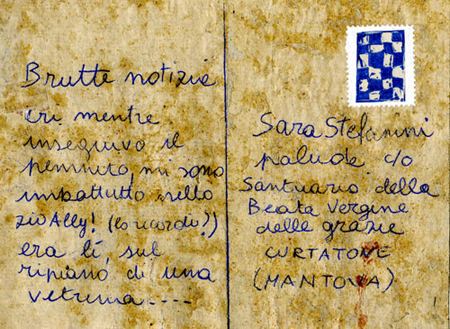 Brutte notizie
eri mentre
inseguivo il
pennuto, mi sono
imbattuto nello
zio Ally! (lo ricordo?)
era lì, sul
ripiano di una
vetrina ----
Sara Stefanini
palude c/o
Santuario della
Beata Vergine
delle grazie
CURTATONE
(MANTOVA)